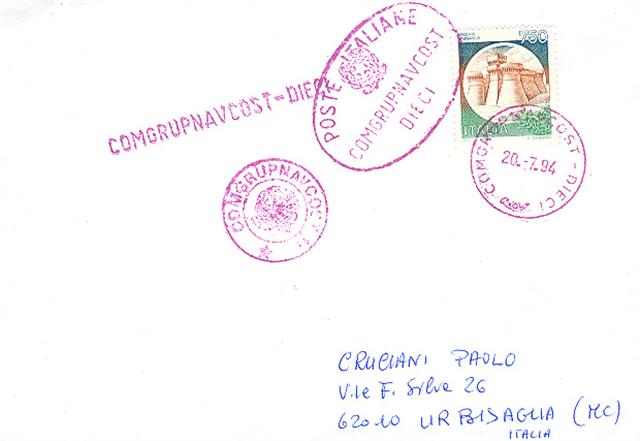 COMGRUPNAVCOST=DIECI
POSTE ITALIANE
COMGRUPNAVCOST
DIECI
750
ITALIA
COMGRUPNAVCOST-DIECI
20.-7.94
COMGRUPNAVCOST
CRUCIANI PAOLO
V.le F. Silva 26
62010 URBISAGLIA (MC)
ITALIA